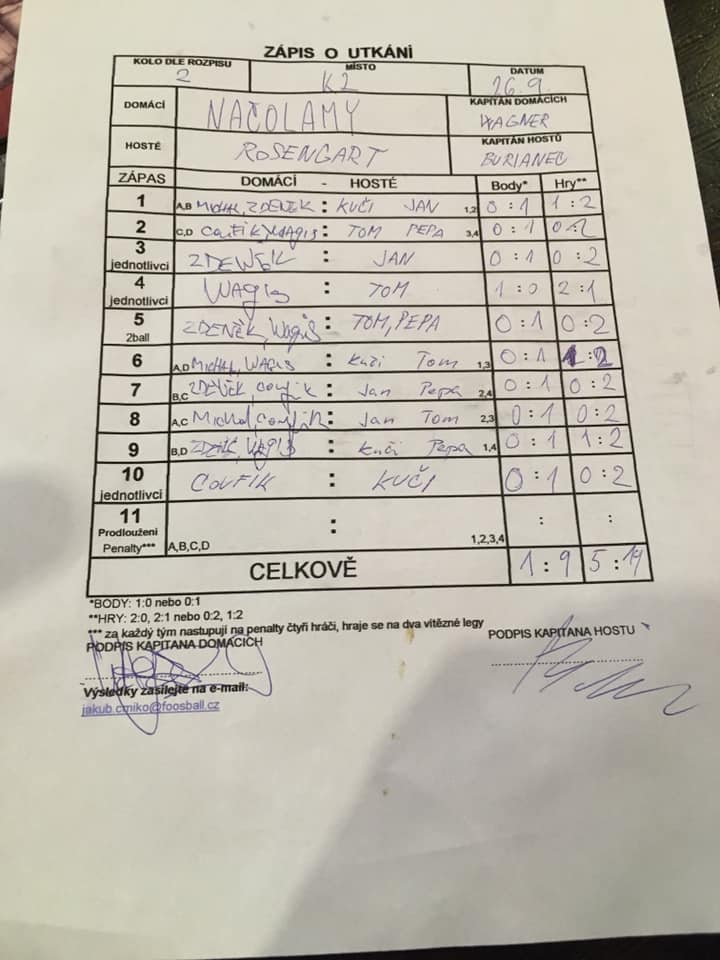 ZÁPIS O UTKÁNÍ
KOLO DLE ROZPISU MÍSTO DATUM
2 K2 26.9.
DOMÁCÍ NAČOLAMY KAPITÁN DOMÁCÍCH WAGNER
HOSTÉ ROSENGART KAPITÁN HOSTŮ BURIANEC
ZÁPAS DOMÁCÍ - HOSTÉ Body* Hry**
1 A,B MICHAL, ZDENĚK : KUČI JAN 1,2 0 : 1 1 : 2
2 C,D COUFIK, WAGIS : TOM PEPA 3,4 0 : 1 0 : 2
3 jednotlivci ZDENĚK : JAN 0 : 1 0 : 2
4 jednotlivci WAGIS : TOM 1 : 0 2 : 1
5 2ball ZDENĚK, WAGIS : TOM, PEPA 0 : 1 0 : 2
6 A,D MICHAL, WAGIS : Kuči Tom 1,3 0 : 1 1 : 2
7 B,C ZDENĚK, COUFIK : Jan Pepa 2,4 0 : 1 0 : 2
8 A,C Michal, COUFIK : Jan Tom 2,3 0 : 1 0 : 2
9 B,D WAGIS : Kuči Pepa 1,4 0 : 1 1 : 2
10 jednotlivci COUFIK : KUČI 0 : 1 0 : 2
11 Prodloužení Penalty*** A,B,C,D : 1,2,3,4 : :
CELKOVĚ 1 : 9 5 : 19
*BODY: 1:0 nebo 0:1
**HRY: 2:0, 2:1 nebo 0:2, 1:2
*** za každý tým nastupují na penalty čtyři hráči, hraje se na dva vítězné legy
PODPIS KAPITÁNA DOMÁCÍCH PODPIS KAPITÁNA HOSTŮ
Výsledky zasílejte na e-mail:
jakub.cmiko@foosball.cz